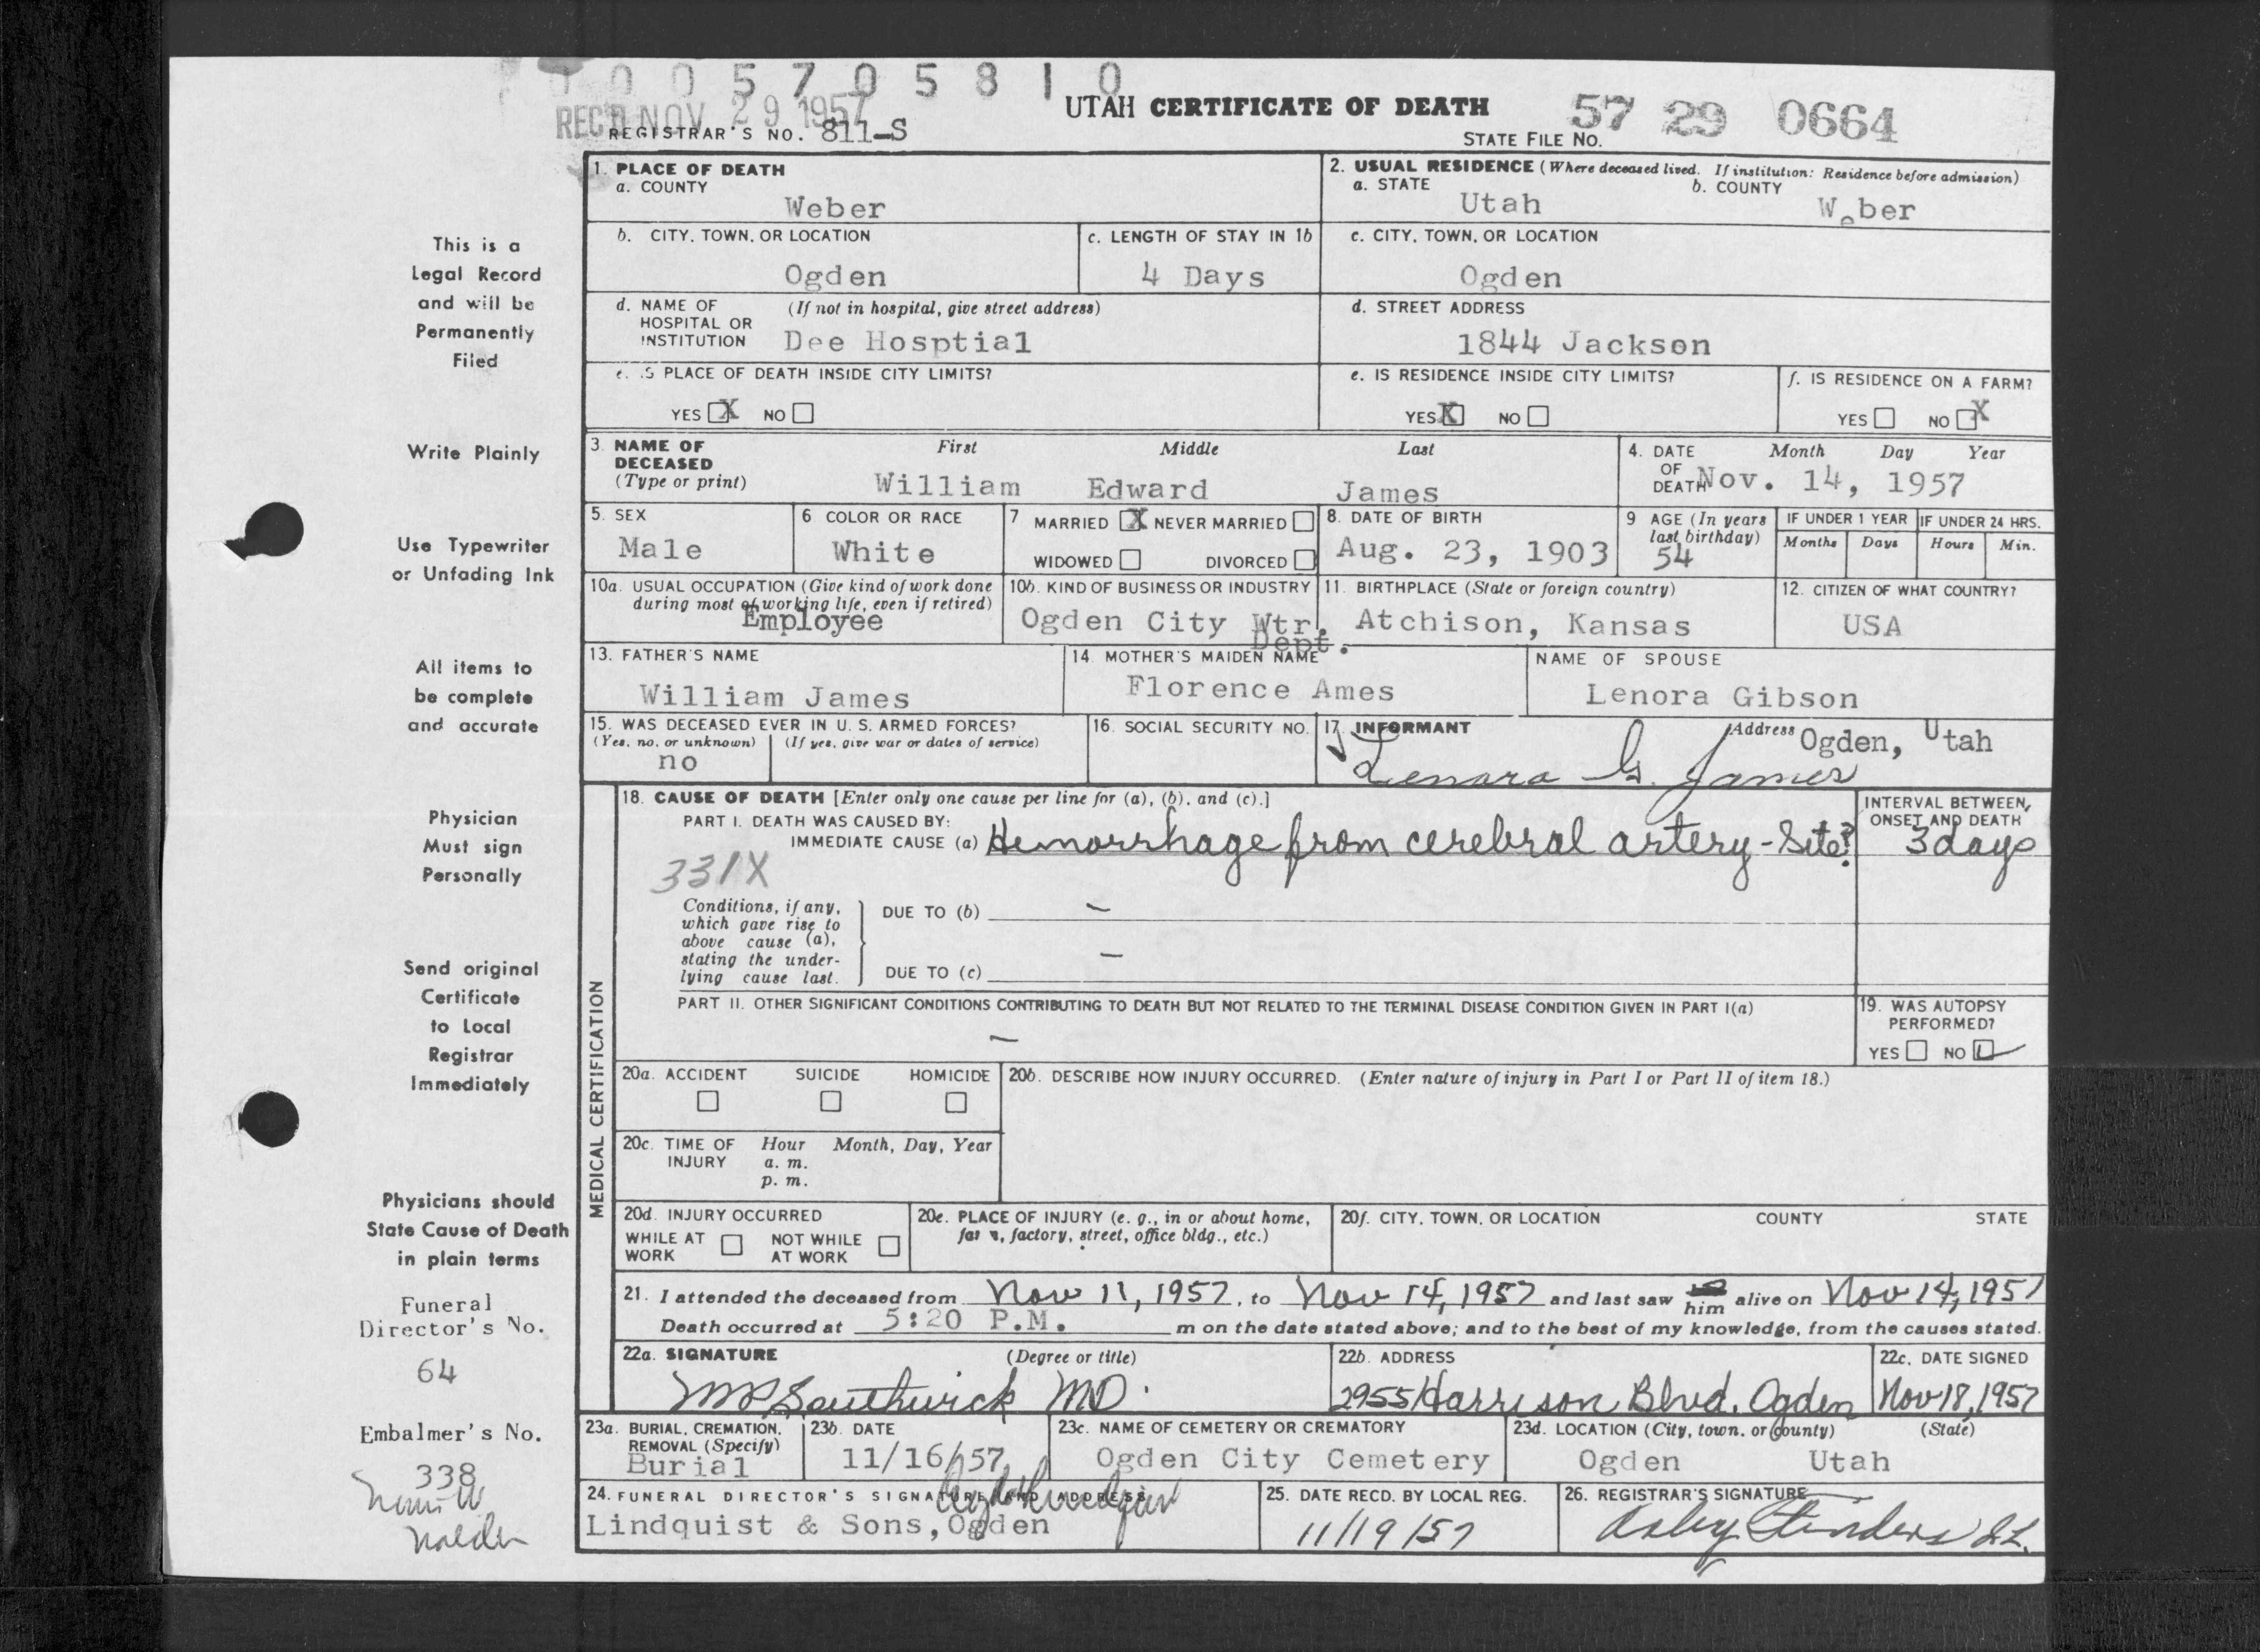 0 0 5 7 0 5 8 1 0
REC'D NOV 29 1957
UTAH CERTIFICATE OF DEATH
57 29 0664
REGISTRAR'S NO. 811-S
STATE FILE NO.
This is a
Legal Record
and will be
Permanently
Filed
Write Plainly
Use Typewriter
or Unfading Ink
All items to
be complete
and accurate
Physician
Must sign
Personally
Send original
Certificate
to Local
Registrar
Immediately
Physicians should
State Cause of Death
in plain terms
Funeral
Director's No.
64
Embalmer's No.
338
1. PLACE OF DEATH
a. COUNTY
Weber
2. USUAL RESIDENCE (Where deceased lived. If institution: Residence before admission)
a. STATE b. COUNTY
Utah Weber
b. CITY, TOWN, OR LOCATION
Ogden
c. LENGTH OF STAY IN 1b
4 Days
c. CITY, TOWN, OR LOCATION
Ogden
d. NAME OF (If not in hospital, give street address)
HOSPITAL OR
INSTITUTION Dee Hosptial
d. STREET ADDRESS
1844 Jackson
e. IS PLACE OF DEATH INSIDE CITY LIMITS?
YES X NO
e. IS RESIDENCE INSIDE CITY LIMITS?
YES X NO
f. IS RESIDENCE ON A FARM?
YES NO X
3. NAME OF First Middle Last
DECEASED
(Type or print) William Edward James
4. DATE Month Day Year
OF
DEATH Nov. 14, 1957
5. SEX
Male
6 COLOR OR RACE
White
7 MARRIED X NEVER MARRIED
WIDOWED DIVORCED
8. DATE OF BIRTH
Aug. 23, 1903
9 AGE (In years
last birthday)
54
IF UNDER 1 YEAR
Months Days
IF UNDER 24 HRS.
Hours Min.
10a. USUAL OCCUPATION (Give kind of work done
during most of working life, even if retired)
Employee
10b. KIND OF BUSINESS OR INDUSTRY
Ogden City Wtr.
Dept.
11. BIRTHPLACE (State or foreign country)
Atchison, Kansas
12. CITIZEN OF WHAT COUNTRY?
USA
13. FATHER'S NAME
William James
14. MOTHER'S MAIDEN NAME
Florence Ames
NAME OF SPOUSE
Lenora Gibson
15. WAS DECEASED EVER IN U. S. ARMED FORCES?
(Yes, no, or unknown) (If yes, give war or dates of service)
no
16. SOCIAL SECURITY NO.
17. INFORMANT Address Ogden, Utah
Lenora G. James
MEDICAL CERTIFICATION
18. CAUSE OF DEATH [Enter only one cause per line for (a), (b), and (c).]
PART I. DEATH WAS CAUSED BY:
IMMEDIATE CAUSE (a) Hemorrhage from cerebral artery - Site?
INTERVAL BETWEEN
ONSET AND DEATH
3 days
331X
Conditions, if any,
which gave rise to
above cause (a),
stating the under-
lying cause last.
DUE TO (b) –
DUE TO (c) –
PART II. OTHER SIGNIFICANT CONDITIONS CONTRIBUTING TO DEATH BUT NOT RELATED TO THE TERMINAL DISEASE CONDITION GIVEN IN PART I(a)
–
19. WAS AUTOPSY
PERFORMED?
YES NO
20a. ACCIDENT SUICIDE HOMICIDE
20b. DESCRIBE HOW INJURY OCCURRED. (Enter nature of injury in Part I or Part II of item 18.)
20c. TIME OF Hour Month, Day, Year
INJURY a. m.
p. m.
20d. INJURY OCCURRED
WHILE AT NOT WHILE
WORK AT WORK
20e. PLACE OF INJURY (e. g., in or about home,
farm, factory, street, office bldg., etc.)
20f. CITY, TOWN, OR LOCATION COUNTY STATE
21. I attended the deceased from Nov 11, 1957, to Nov 14, 1957 and last saw him alive on Nov 14, 1957
Death occurred at 5:20 P.M. m on the date stated above; and to the best of my knowledge, from the causes stated.
22a. SIGNATURE (Degree or title)
Southwick MD.
22b. ADDRESS
2955 Harrison Blvd. Ogden
22c. DATE SIGNED
Nov 18, 1957
23a. BURIAL, CREMATION,
REMOVAL (Specify)
Burial
23b. DATE
11/16/57
23c. NAME OF CEMETERY OR CREMATORY
Ogden City Cemetery
23d. LOCATION (City, town, or county) (State)
Ogden Utah
24. FUNERAL DIRECTOR'S SIGNATURE AND ADDRESS
Lindquist & Sons, Ogden
25. DATE RECD. BY LOCAL REG.
11/19/57
26. REGISTRAR'S SIGNATURE